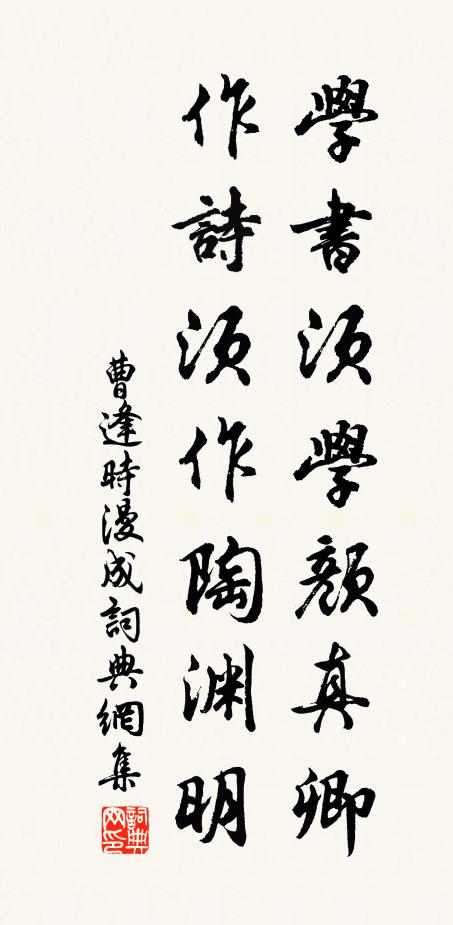 學書須學顏真卿
作詩須作陶淵明
曹逢時漫成詞典網集
詞典网印